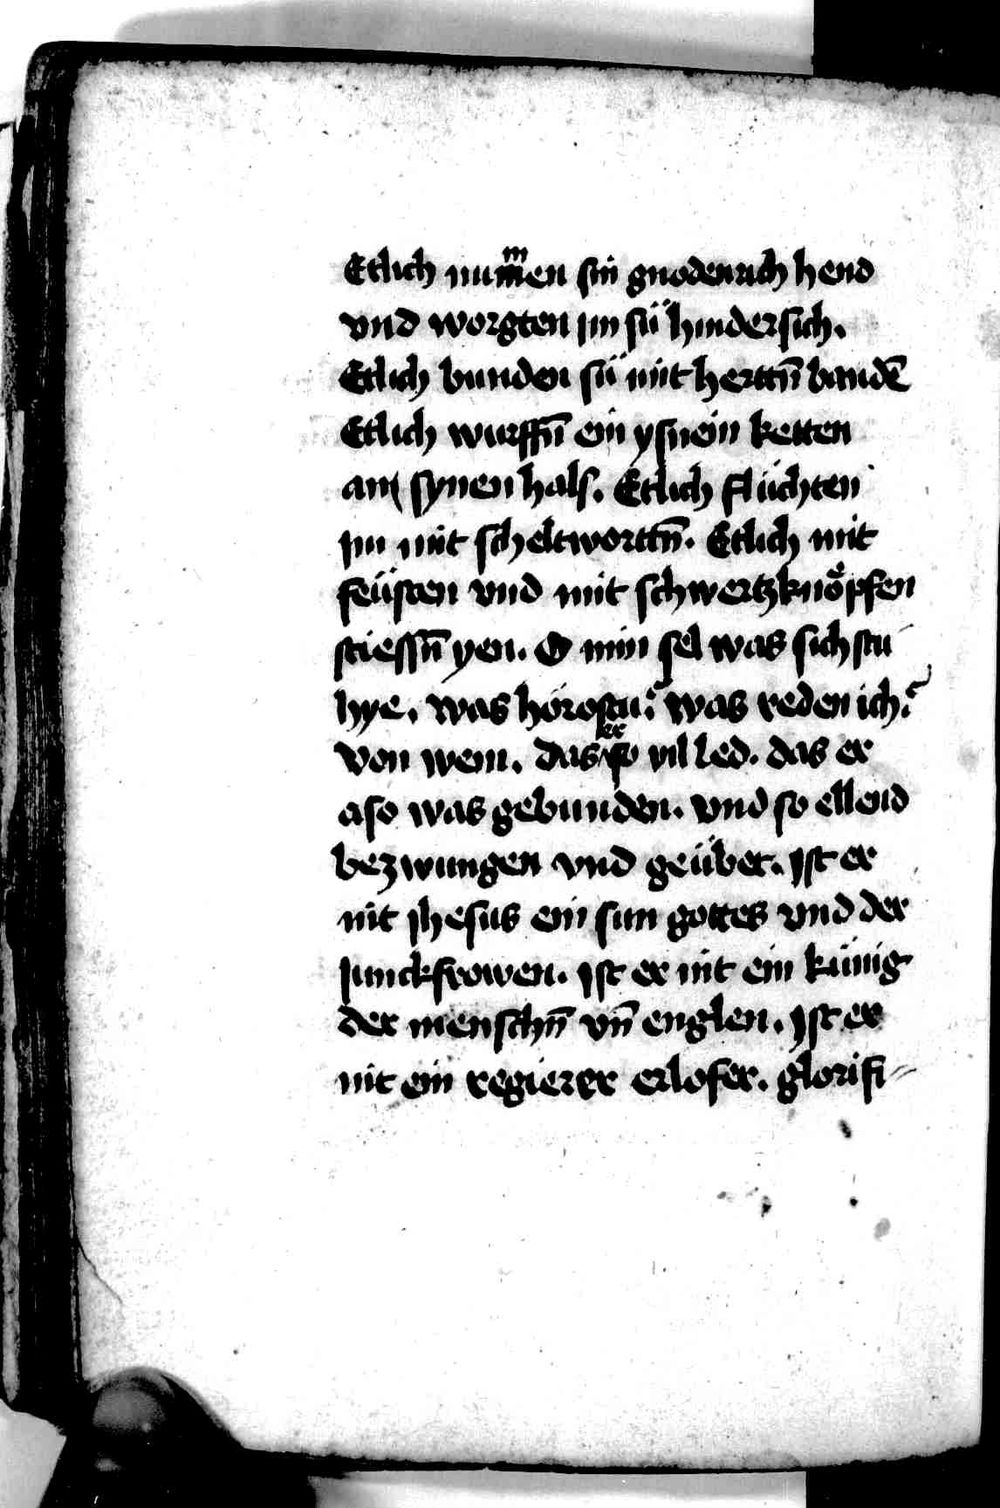 Etlich nummen sin gnodenrich hend
vnd worgten im sü hindersich.
Etlich bunden sü mit herttn̄ bandē
Etlich wurffn̄ ein ysnein ketten
an synen hals. Etlich flüchten
im mit scheltworttn̄. Etlich mit
feüsten vnd mit schwertzknöpfen
stiessn̄ yen. O min sel was sichstu
hye. was hörostu? was reden ich?
von wem. das er so vil led. das er
aso was gebunden. vnd so ellend
bezwungen vnd geübet. Ist er
nit Jhesus ein sun gottes vnd der
Junckfrowen. Ist er nit ein künig
der menschn̄ vn̄ englen. Ist er
nit ein regierer erloser. glorifi⸗